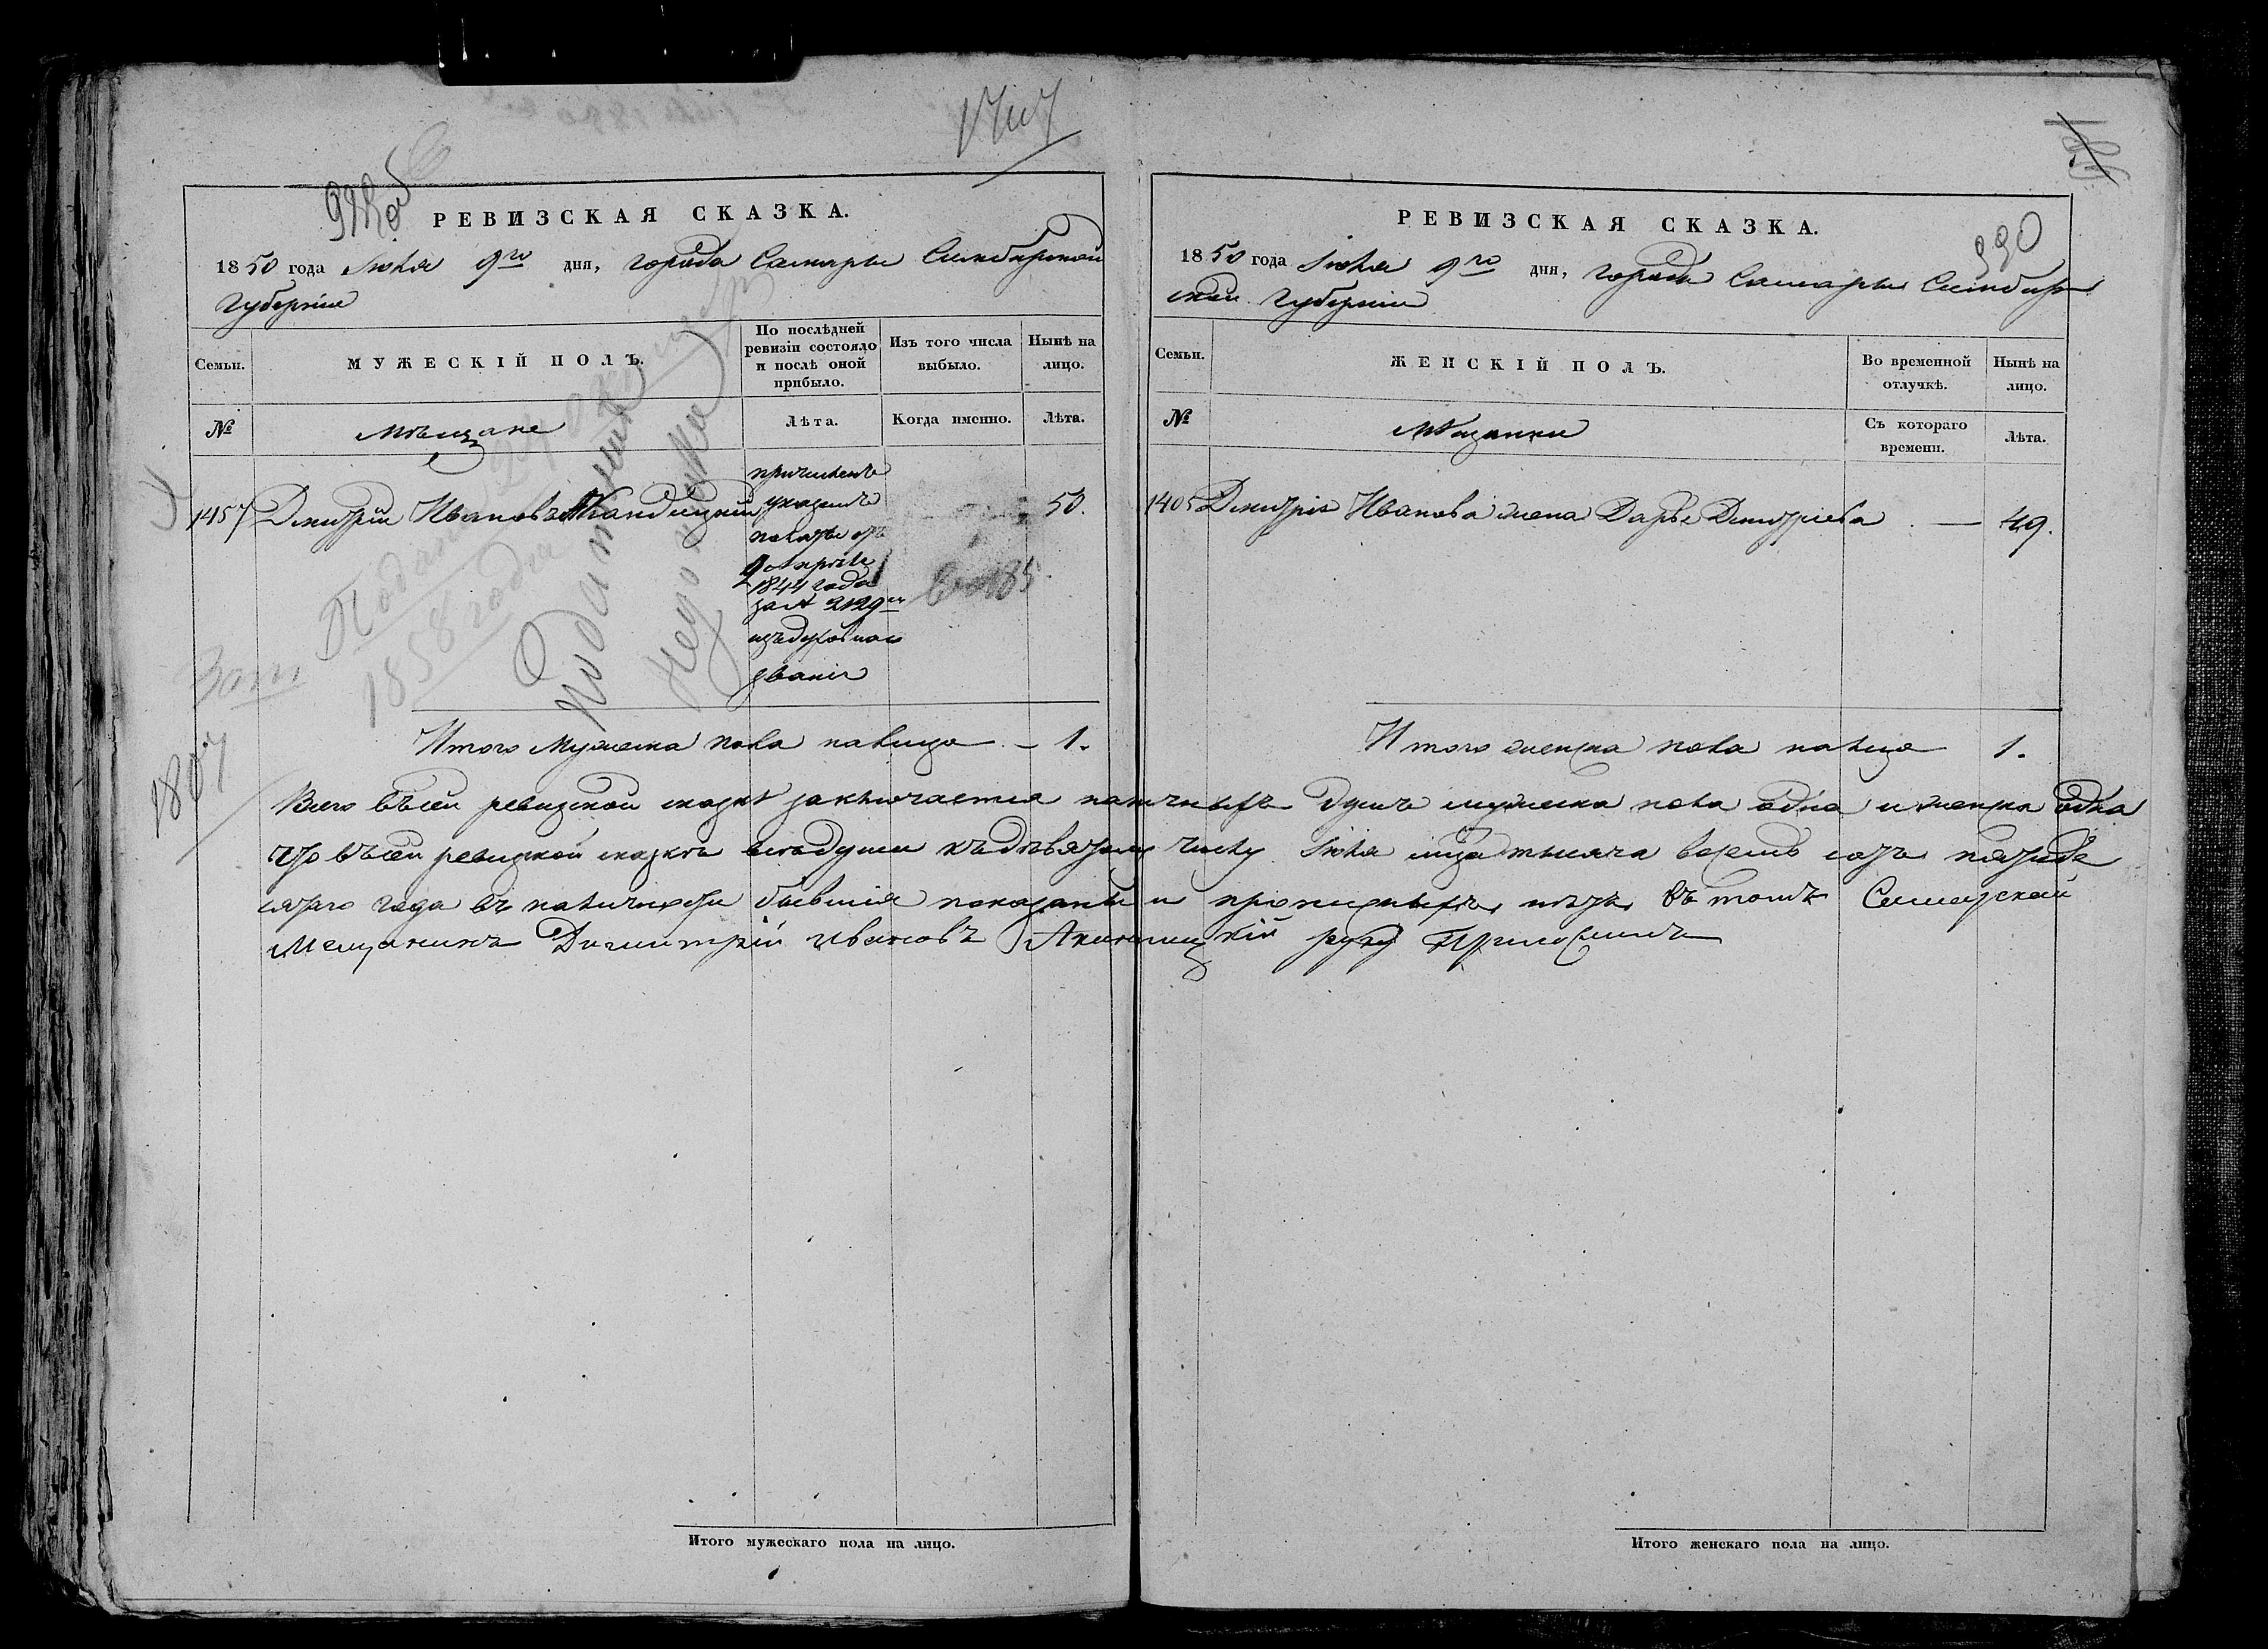 РЕВИЗСКАЯ СКАЗКА.
1850 года Июля 9го дня, города Самары Симбирской
Губернiи
Семьи.
МУЖЕСКIЙ ПОЛЪ.
По послѣдней
ревизiи состояло
и послѣ оной
прибыло.
Изъ того числа
выбыло.
Нынѣ на
лицо.
№
Мѣщане
Лѣта.
Когда именно.
Лѣта.
1457 Дмитрiй Ивановъ
50.
причисленъ
указомъ
палаты отъ
апрѣля
1844 года
за № 2129м
изъ духовнаго
званiя
Подана
1858 года
1807
Итого Мужеска пола налицо — 1.
РЕВИЗСКАЯ СКАЗКА.
990
1850 года Iюля 9го дня, города Самары Симбир
ской Губернiи
Семьи.
ЖЕНСКIЙ ПОЛЪ.
Во временной
отлучкѣ.
Нынѣ на
лицо.
№
Мѣщанки
Съ котораго
времени.
Лѣта.
1405 Дмитрiя Иванова жена Дарья Дмитрiева — 49.
Итого женска пола налицо 1.
Всего въ сей ревизской сказкѣ заключается наличныхъ душъ мужеска пола одна и женска одна
что въ сей ревизской сказкѣ всѣ души къ девятому числу Iюля мца тысяча восемь сотъ пятьде
сятаго года въ наличности бывшiя показаны и прописныхъ нѣтъ въ томъ Самарской
Мещанинъ Димитрiй Ивановъ руку приложилъ
Итого мужескаго пола на лицо.
Итого женскаго пола на лицо.